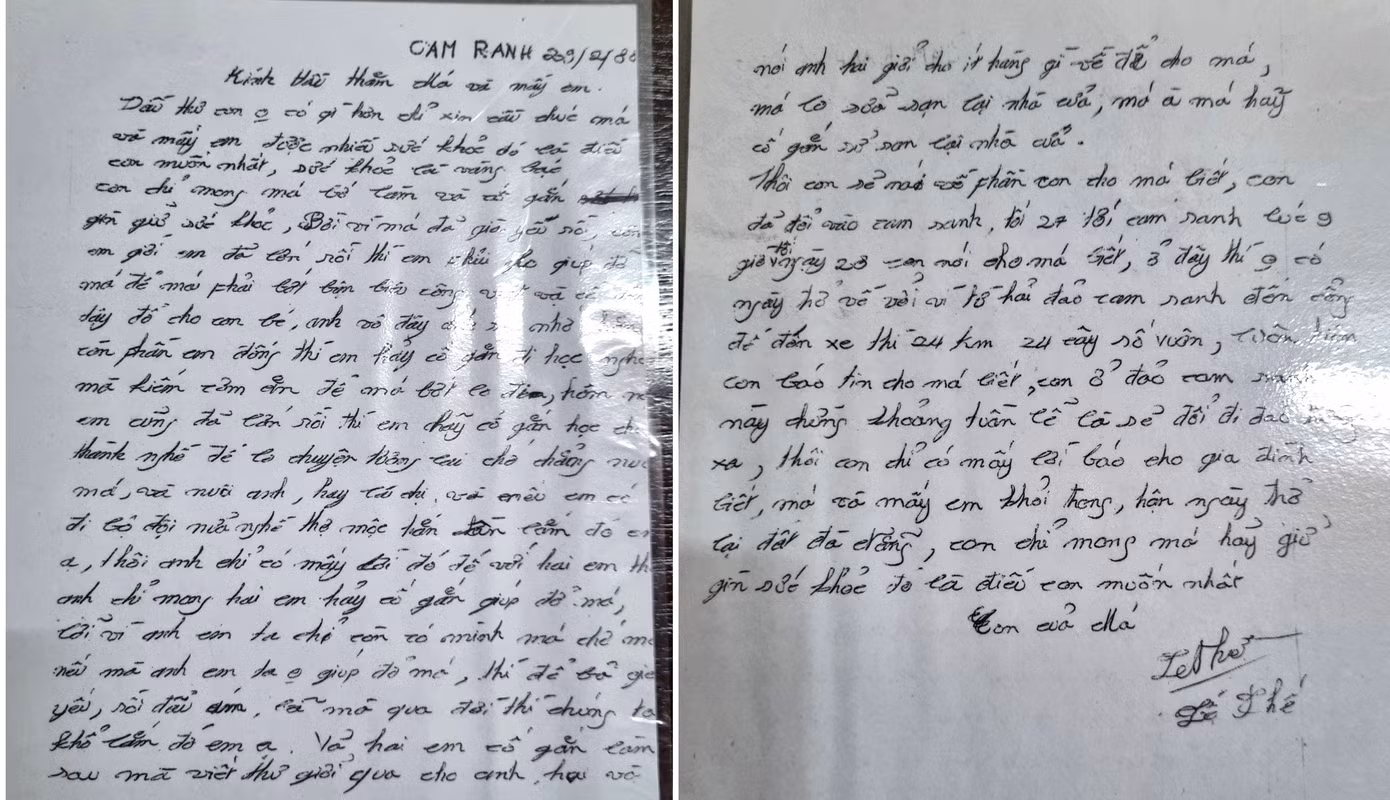 CAM RANH 29/2/88
Kính thăm Má và mấy em.
Đầu thư con o có gì hơn chỉ xin cầu chúc má
và mấy em được nhiều sức khỏe đó là điều
con muốn nhất, sức khỏe là vàng bạc
con chỉ mong má bớt làm và cố gắn
gìn giữ sức khỏe, Bởi vì má đã già yếu rồi,
em giới em đã lớn rồi thì em chịu cho giúp đỡ
má để má phải bớt bận biệu công và
dây đồ cho con bé, anh vô đây nhớ
còn phần em đông thì em hãy cố gắn đi học nghề
mà kiếm cơm ăn để má bớt lo đến, hôm nay
em cũng đã lớn rồi thì em hãy cố gắn học
thành nghề để lo chuyện tương lai chớ chẳng nuôi
má, và nuôi anh, hay là chị, và nếu em có
đi bộ đội nửa nghề thợ mộc hắn lắm đó em
ạ, thôi anh chỉ có mấy lời đó để với hai em
anh chỉ mong hai em hảy cố gắn giúp đở má,
bởi vì anh em ta chỉ còn có mình má chớ
nếu mà anh em ta o giúp đở má, thì để bả già
yếu, rồi đầu ốm, mà qua đời thì chúng ta
khổ lắm đó em ạ. Và hai em cố gắn làm
sau mà viết thư giởi qua cho anh hai và
nói anh hai giởi cho ít hàng gì về để cho má,
má lo sửa sạn lại nhà cửa, má à má hãy
cố gắn sử san lại nhà cửa.
Thôi con sẽ nói về phần con cho má biết, con
đã đổi vào cam ranh, tối 27 tới cam ranh lúc 9
giờ tối ngày 28 con nói cho má biết, ở đây thì o có
ngày trở về với vì từ hải đảo cam ranh đến cổng
để đón xe thì 24 km 24 cây số vườn,
con báo tin cho má biết, con ở đảo cam ranh
này chừng khoảng tuần lể là sẻ đổi đi đảo
xa, thôi con chỉ có mấy lời báo cho gia đình
biết, má và mấy em khỏi trong, hận ngày trở
lại đất đà đẵng, con chỉ mong má hảy giử
gìn sức khỏe đó là điều con muốn nhất
Con của Má
LeThế
Lê Thế